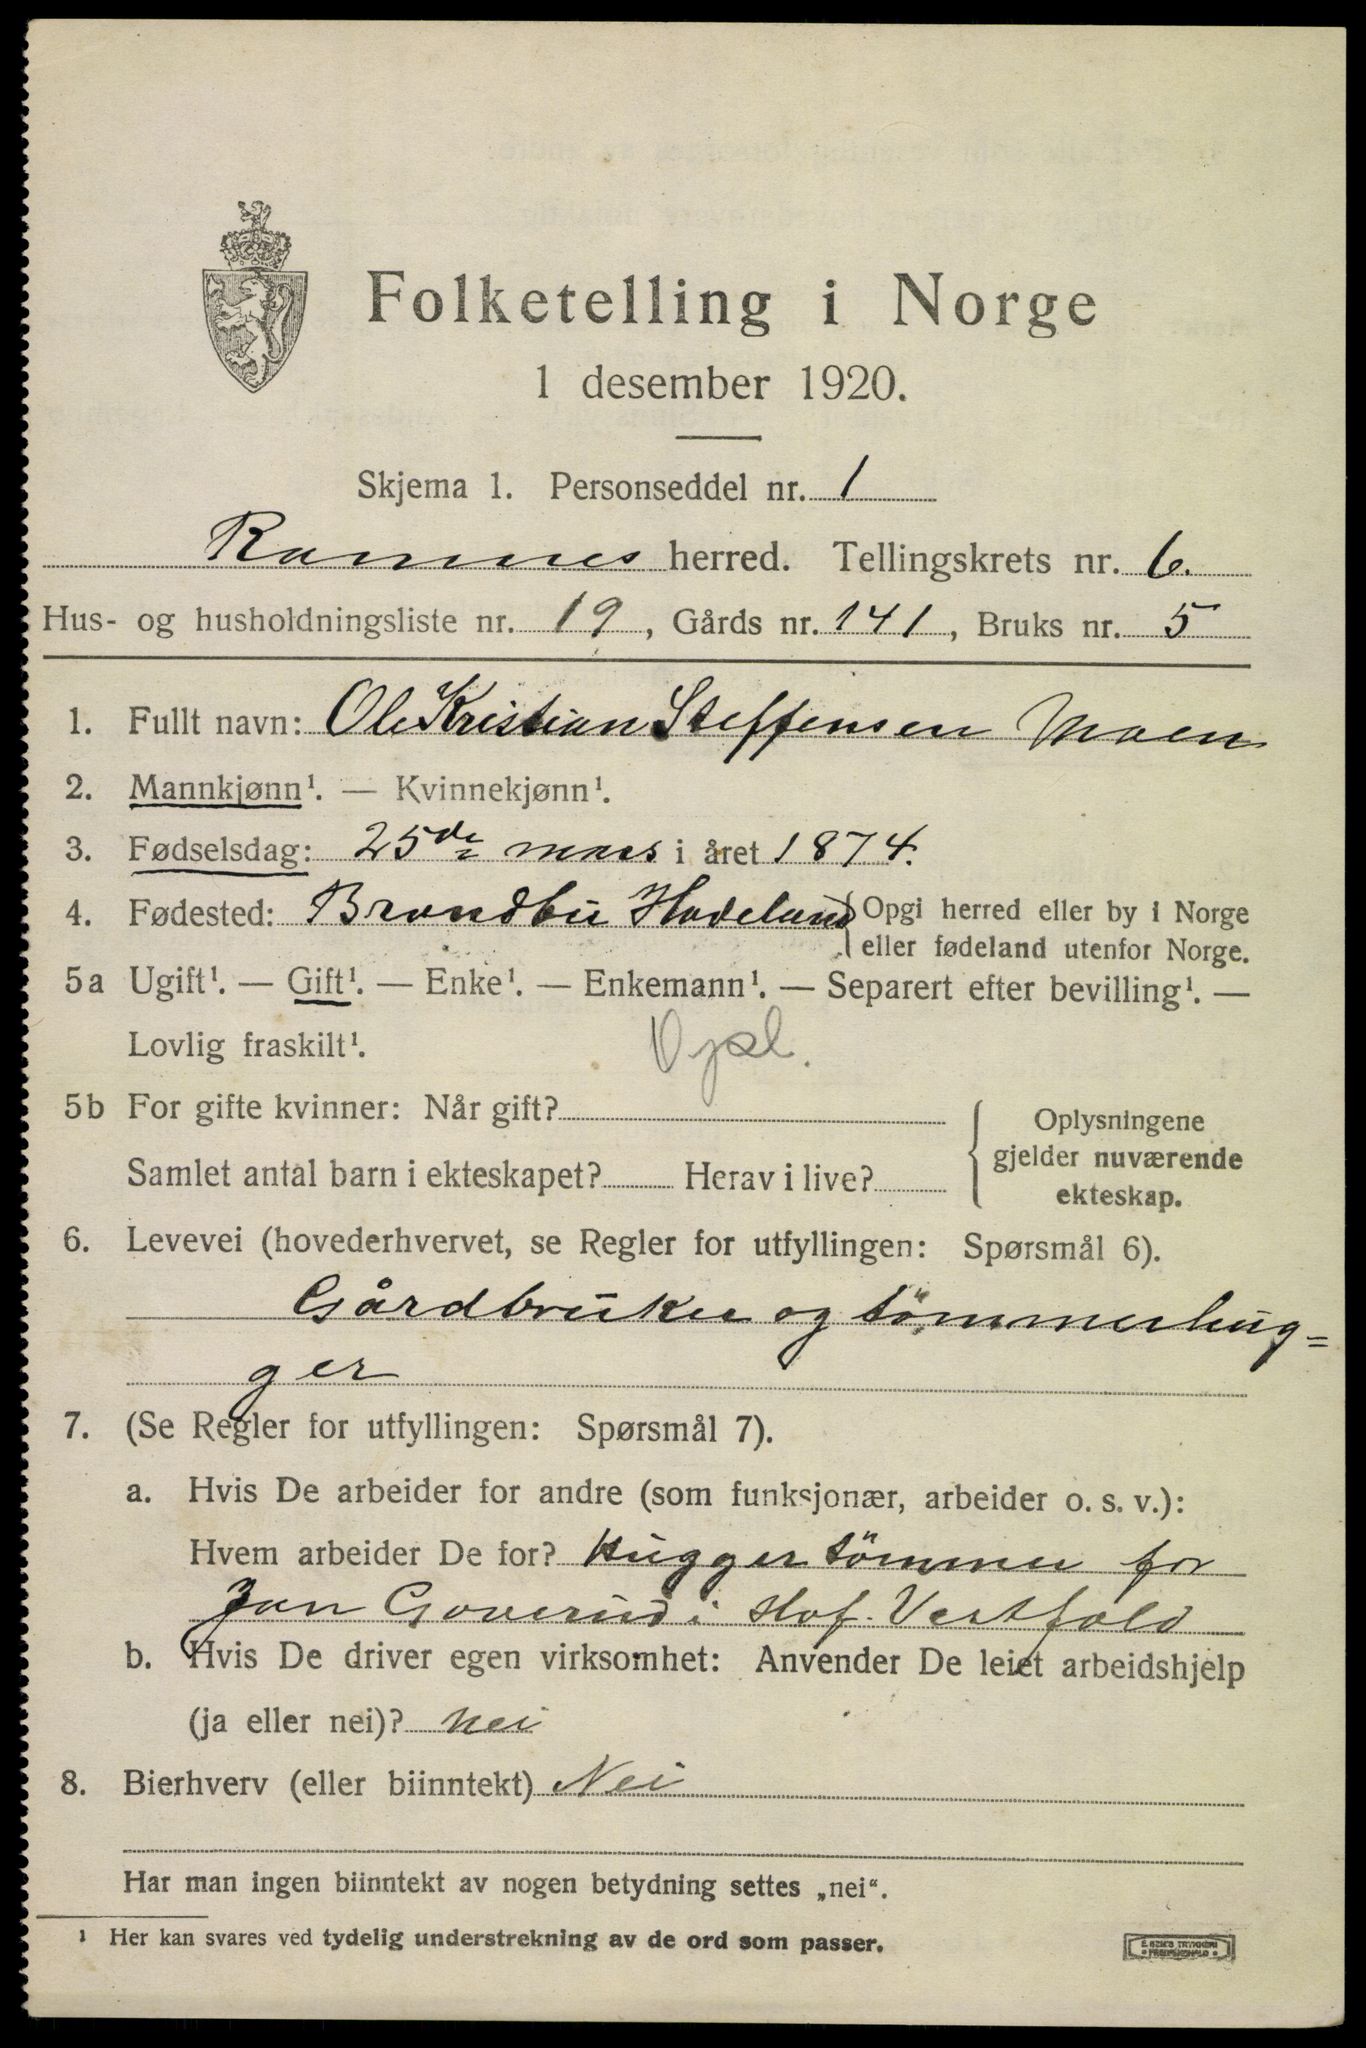 Folketelling i Norge
1 desember 1920.
Skjema 1. Personseddel nr. 1
Ramnes herred. Tellingskrets nr. 6.
Hus- og husholdningsliste nr. 19, Gårds nr. 141, Bruks nr. 5
1. Fullt navn: Ole Kristian Steffensen Moen
2. Mannkjønn¹. — Kvinnekjønn¹.
3. Fødselsdag: 25de mars i året 1874.
4. Fødested: Brandbu Hadeland { Opgi herred eller by i Norge
eller fødeland utenfor Norge.
5a Ugift¹. — Gift¹. — Enke¹. — Enkemann¹. — Separert efter bevilling¹. —
Lovlig fraskilt¹.
5b For gifte kvinner: Når gift?
Samlet antal barn i ekteskapet? Herav i live?
Oplysningene
gjelder nuværende
ekteskap.
6. Levevei (hovederhvervet, se Regler for utfyllingen: Spørsmål 6).
Gårdbruker og tömmerhug=
ger
7. (Se Regler for utfyllingen: Spørsmål 7).
a. Hvis De arbeider for andre (som funksjonær, arbeider o. s. v.):
Hvem arbeider De for? Hugger tömmer for
Jon Gaaerud i Hof. Vestfold
b. Hvis De driver egen virksomhet: Anvender De leiet arbeidshjelp
(ja eller nei)? nei
8. Bierhverv (eller biinntekt) Nei
Har man ingen biinntekt av nogen betydning settes „nei“.
¹ Her kan svares ved tydelig understrekning av de ord som passer.